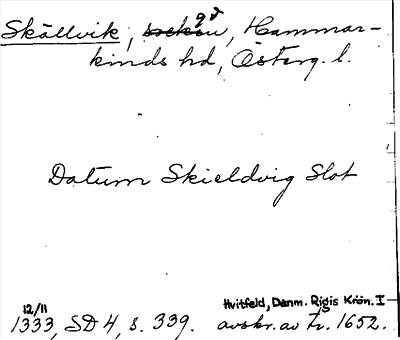 Skällvik, socken, gd, Hammar-
kinds hd, Österg. l.
Datum Skieldvig Slot
12/11 Hvitfeld, Danm. Rigis Krön. I
1333, SD 4, s. 339. avskr. av tr. 1652.